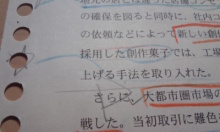 の確保を図ると同時に、社内
の依頼などによって新しい創
採用した創作菓子では、工場
上げる手法を取り入れた。
さらに、大都市圏市場の
戦した。当初取引に難色